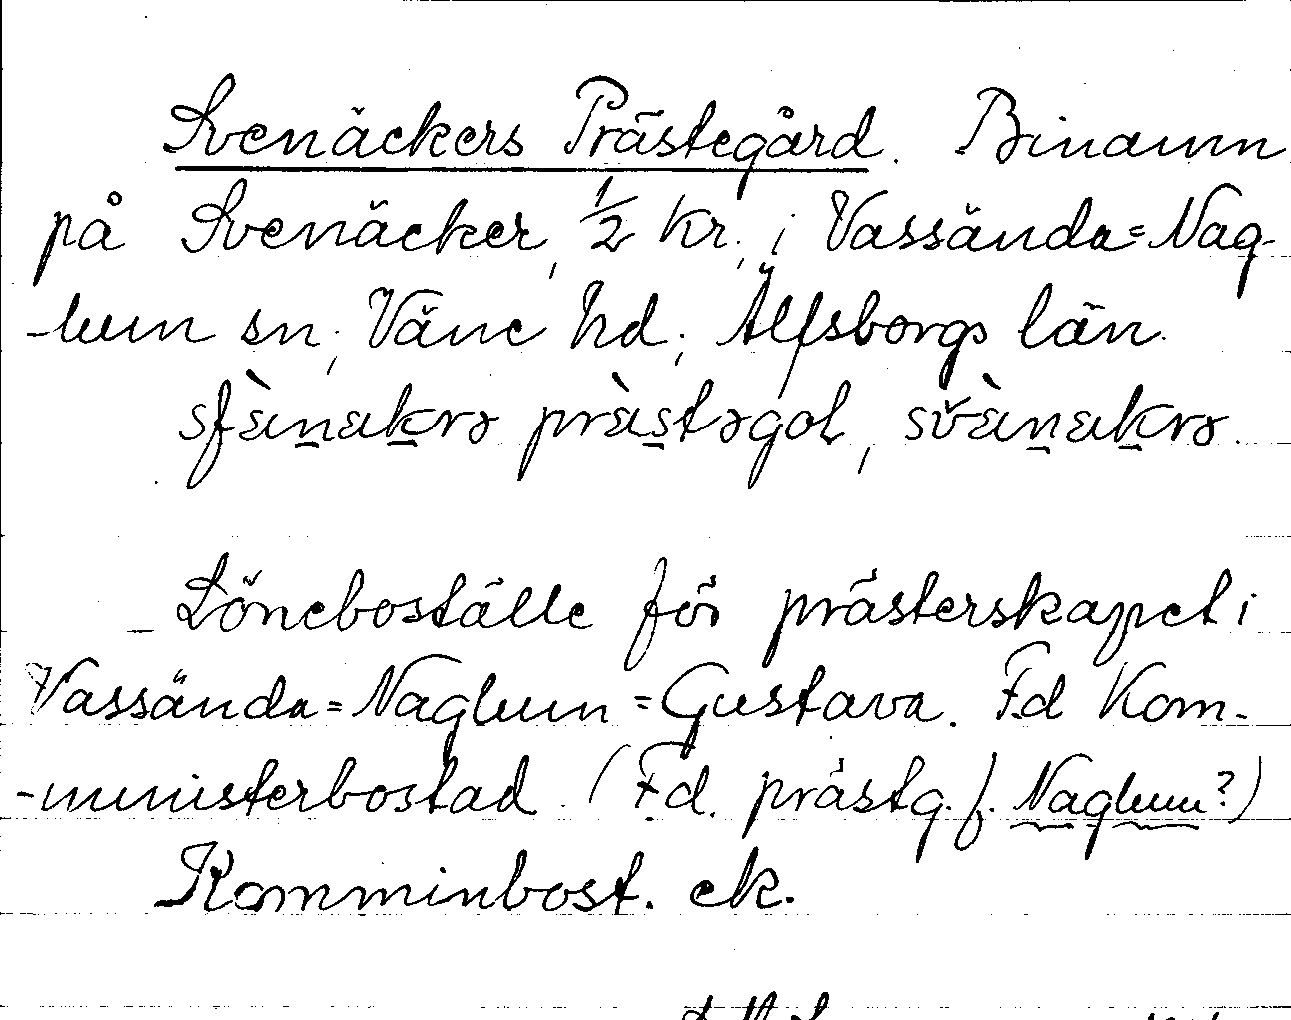 Svenäckers Prästegård. Binamn
på Svenäcker, ½ kr., i Vassända=Nag-
-lum sn, Väne hd, Älfsborgs län.
sfànakrə pràstəgɑl, svànakrə.
Löneboställe för prästerskapet i
Vassända=Naglum=Gustava. F.d Kom-
-ministerbostad. (F.d. prästg. f. Naglum?)
Komminbost. ek.